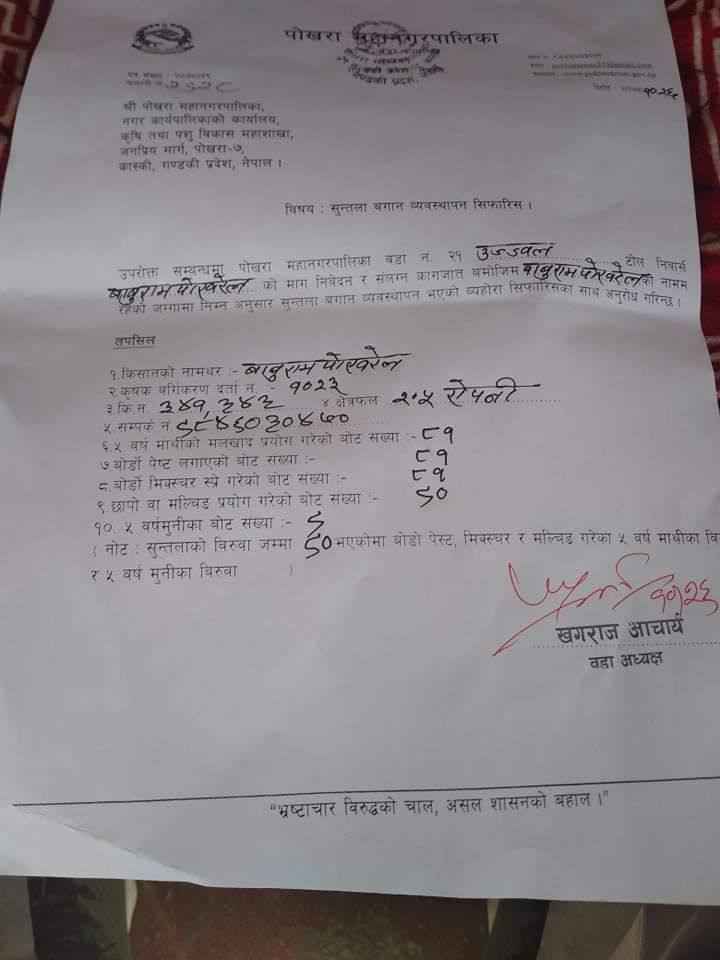 पोखरा महानगरपालिका
गण्डकी प्रदेश
च.नं. २५२८
श्री पोखरा महानगरपालिका,
नगर कार्यपालिकाको कार्यालय,
कृषि तथा पशु विकास महाशाखा,
जनप्रिय मार्ग, पोखरा-७,
कास्की, गण्डकी प्रदेश, नेपाल ।
विषय : सुन्तला बगान व्यवस्थापन सिफारिस ।
उपरोक्त सम्बन्धमा पोखरा महानगरपालिका वडा नं. २१ उज्ज्वल टोल निवासी
बाबुराम पोखरेल को माग निवेदन र संलग्न कागजात बमोजिम बाबुराम पोखरेल को नाममा
रहेको जग्गामा निम्न अनुसार सुन्तला बगान व्यवस्थापन भएको व्यहोरा सिफारिसका साथ अनुरोध गरिन्छ ।
तपसिल
१.किसानको नामथर :- बाबुराम पोखरेल
२.कृषक वर्गिकरण दर्ता नं. :- १०२३
३.कि.न. ३४१, ३४३ ४.क्षेत्रफल २.५ रोपनी
५.सम्पर्क नं. ९८४६०३०४५०
६.५ वर्ष माथीको मलखाद प्रयोग गरेको बोट संख्या :- ८१
७.बोर्डो पेष्ट लगाएको बोट संख्या :- ८१
८.बोर्डो मिक्स्चर स्प्रे गरेको बोट संख्या :- ८१
९.छापो वा मल्चिङ प्रयोग गरेको बोट संख्या :- ९०
१०. ५ वर्षमुनीका बोट संख्या :- ९
( नोट : सुन्तलाको विरुवा जम्मा ९० भएकोमा बोडो पेस्ट, मिक्स्चर र मल्चिङ गरेका ५ वर्ष माथीका वि
र ५ वर्ष मुनीका विरुवा )
खगराज आचार्य
वडा अध्यक्ष
"भ्रष्टाचार विरुद्धको चाल, असल शासनको बहाल ।"